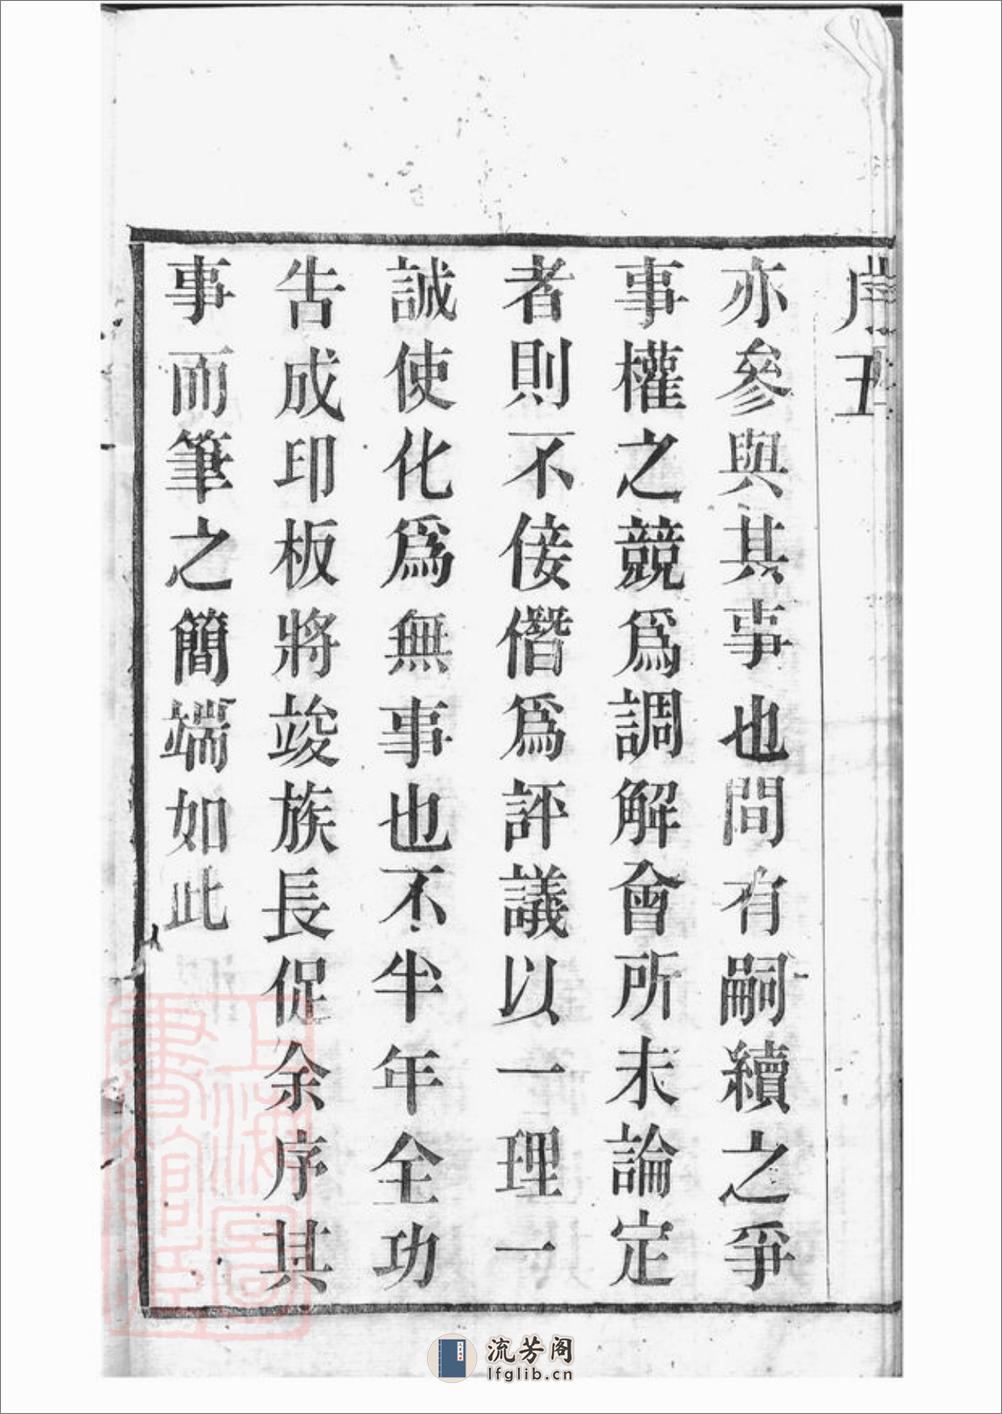 亦參與其事也間有嗣續之爭
事權之競爲調解會所未論定
者則不倿僭爲評議以一理一
誠使化爲無事也不半年全功
告成印板將竣族長促余序其
事而筆之簡端如此
上海圖書館藏
流芳阁
lfglib.cn